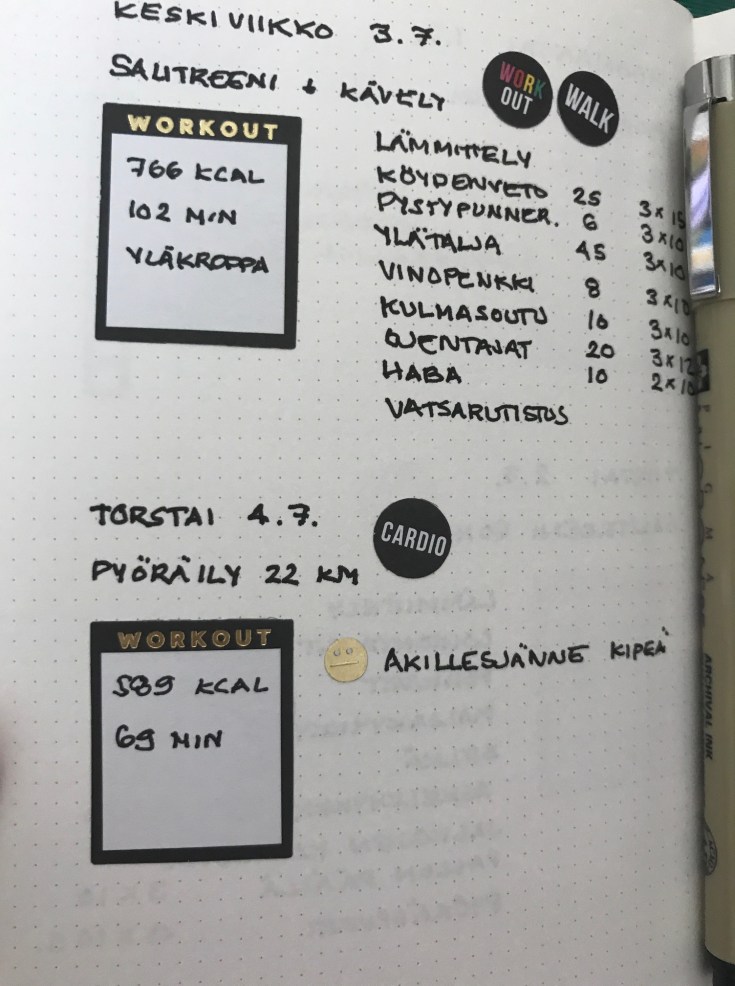 KESKIVIIKKO 3.7.
SALITREENI + KÄVELY
WORK OUT
WALK
WORKOUT
766 KCAL
102 MIN
YLÄKROPPA
LÄMMITTELY
KÖYDENVETO 25 3x15
PYSTYPUNNER. 6 3x10
YLÄTALJA 45 3x10
VINOPENKKI 8 3x10
KULMASOUTU 16 3x10
OJENTAJAT 20 3x12
HABA 10 2x10
VATSARUTISTUS
TORSTAI 4.7.
CARDIO
PYÖRÄILY 22 KM
WORKOUT
589 KCAL
69 MIN
AKILLESJÄNNE KIPEÄ
ARCHIVAL INK